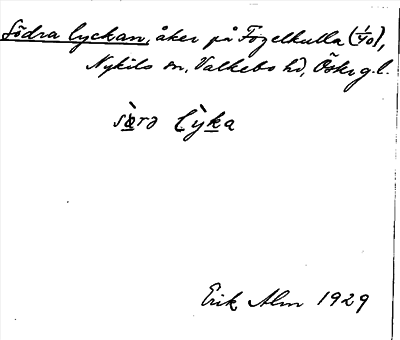 Södra lyckan, åker på Fogelkulla (1/40),
Nykils sn, Valkebo hd, Östergl.
sø̀rə lỳka
Erik Alm 1929